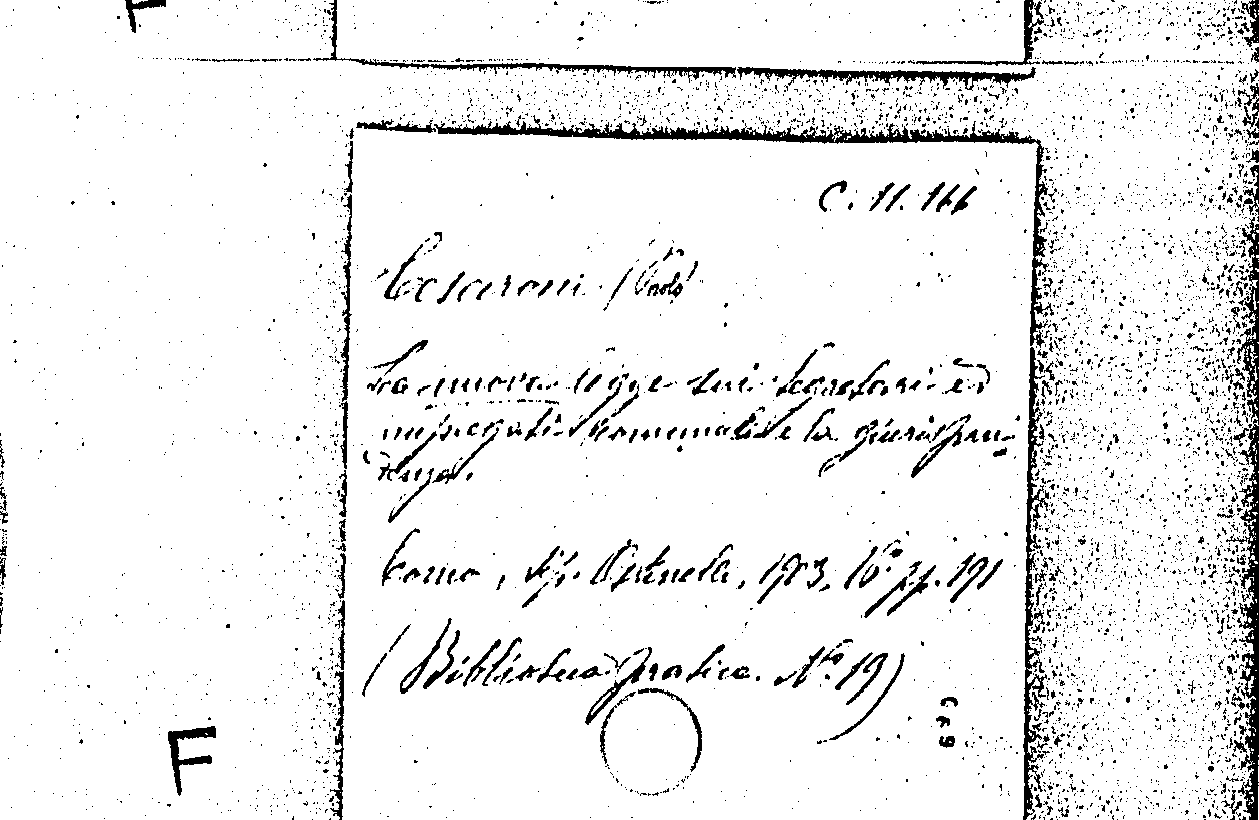 F
C. 11. 166
Cesaroni (Paolo)
La nuova legge sui segretari ed
impiegati comunali e la giurispru-
denza.
Como, tip. Ostinelli, 1903, 16° pp. 191
(Biblioteca pratica. N.° 19)
F